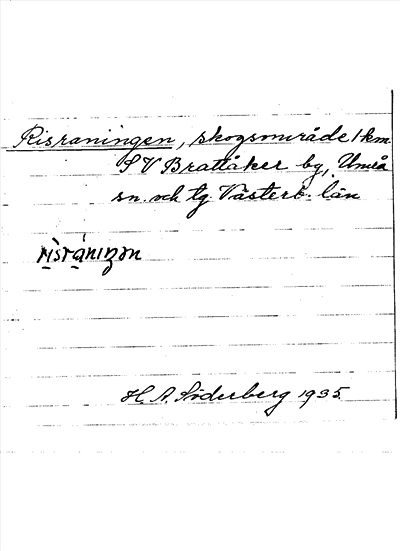 Risraningen, skogsområde 1 km
SV Brattåker by, Umeå
sn. och tg Västerb. län
rìsràniŋən
H. A. Söderberg 1935.